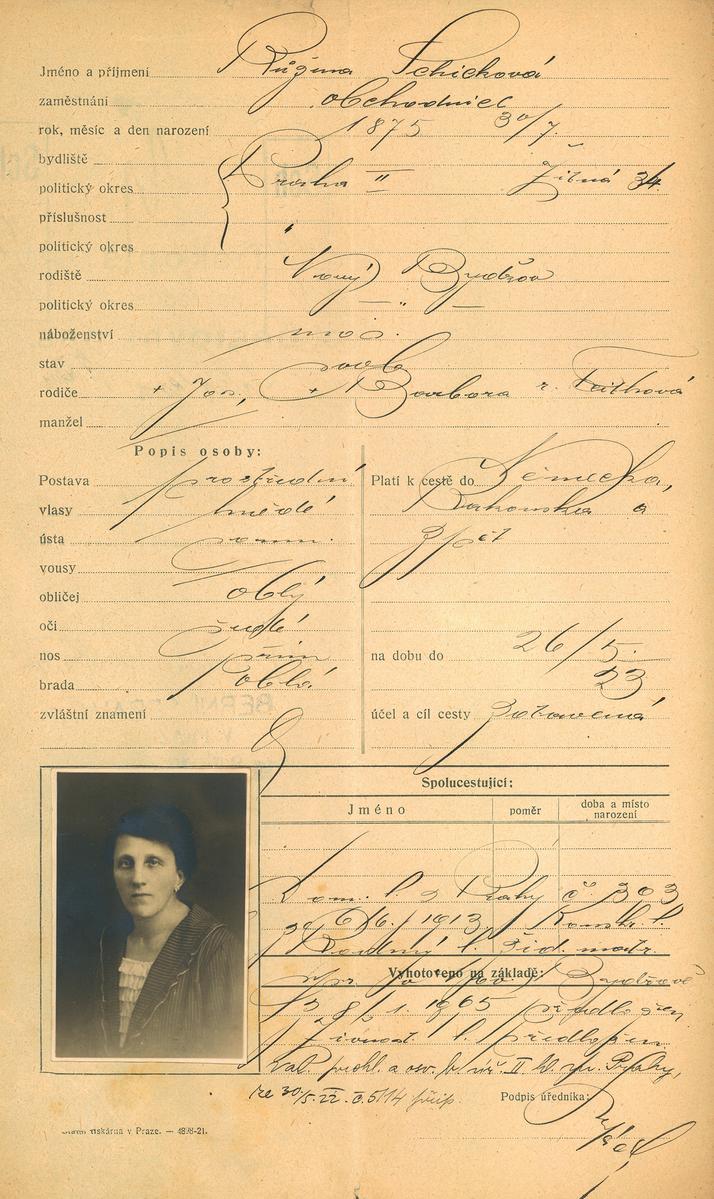 Jméno a příjmení Růžena Schicková
zaměstnání obchodnice
rok, měsíc a den narození 1875 30/7.
bydliště
politický okres Praha II Žitná 34
příslušnost
politický okres "
rodiště Nový Bydžov
politický okres — " —
náboženství mos.
stav svob.
rodiče + Jos., + Barbora r.
manžel
Popis osoby:
Postava prostřední
vlasy hnědé
ústa norm.
vousy
obličej oblý
oči šedé
nos přím
brada oblá
zvláštní znamení
Platí k cestě do Německa,
Rakouska a
zpět
na dobu do 26/5.
23
účel a cíl cesty zotavená
Spolucestující:
Jméno poměr doba a místo narození
Dom. l. z Prahy č. 303
6/6. 1913. Konskr. l.
Rodný l. žid. matr.
Vyhotoveno na základě:
Bydžově
1965 předložen
Živnost. l. předložen.
Val. prohl. a osv. b. úř. II Prahy,
ze 30/5. 22. č. 5114 přip.
Podpis úředníka:
tiskárna v Praze. — 4898-21.